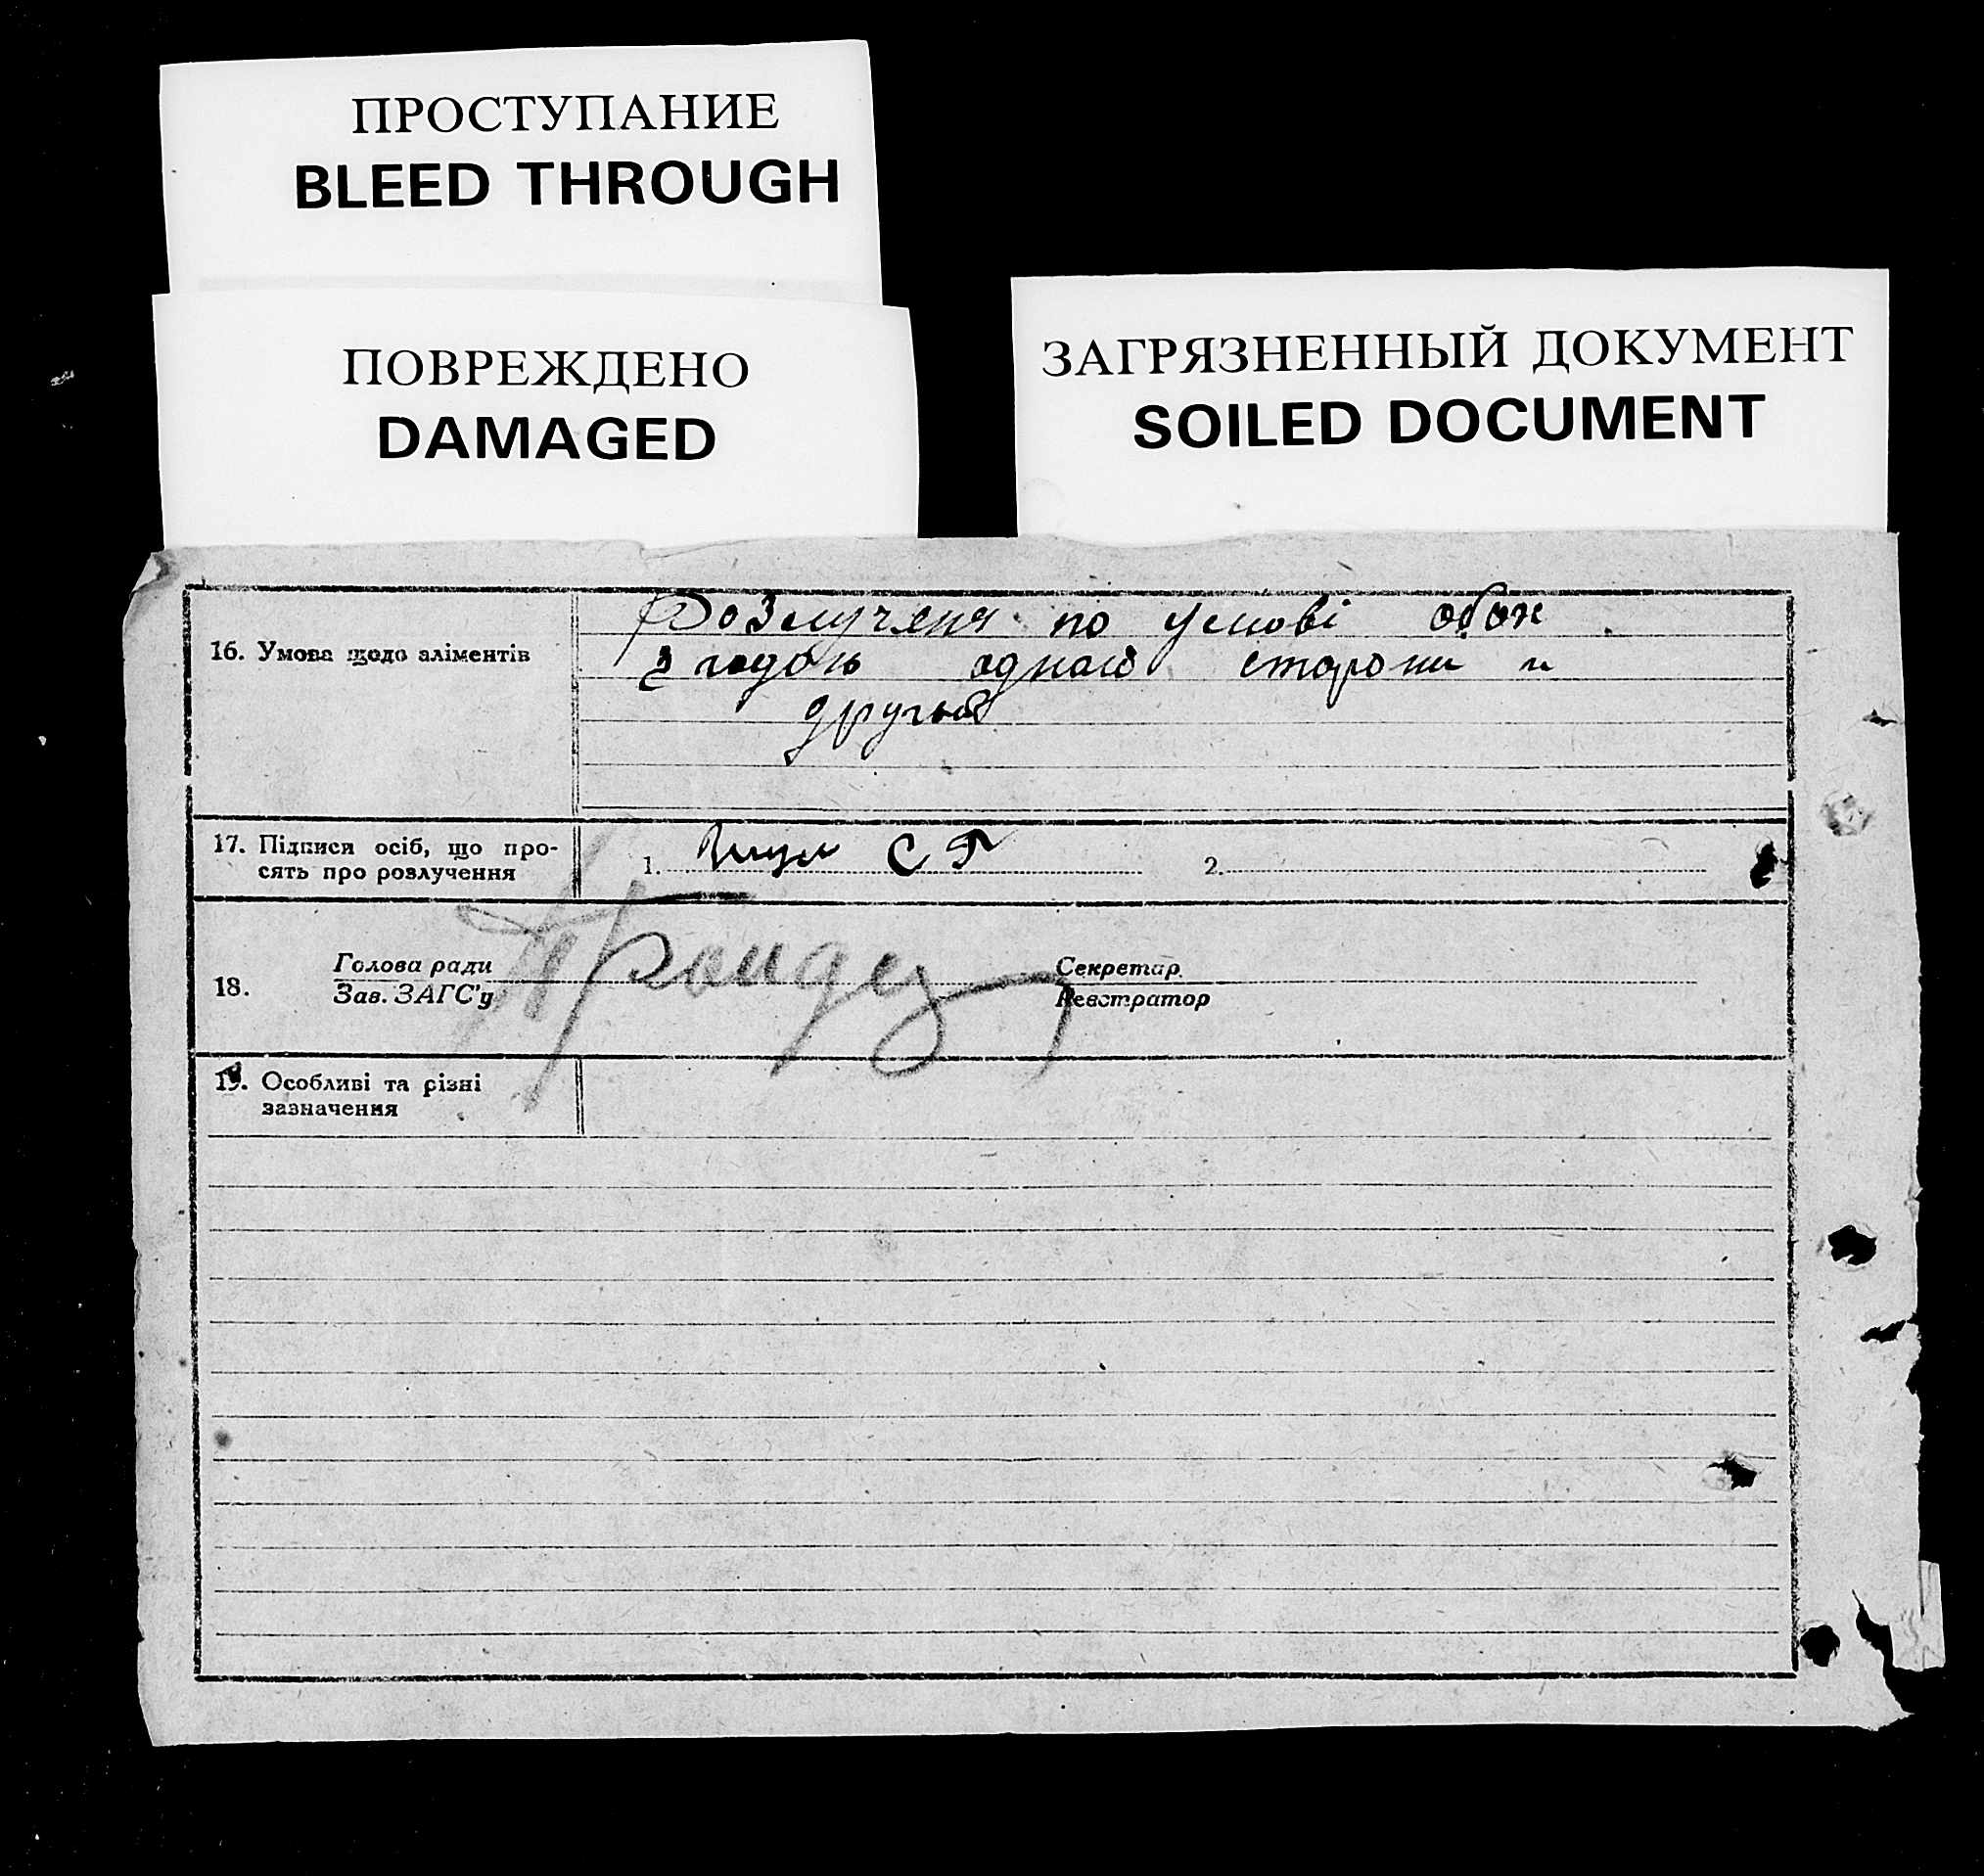 ПРОСТУПАНИЕ
BLEED THROUGH
ПОВРЕЖДЕНО
DAMAGED
ЗАГРЯЗНЕННЫЙ ДОКУМЕНТ
SOILED DOCUMENT
16. Умова щодо аліментів
по умові обох
сторони и
17. Підписи осіб, що про-
сять про розлучення
1. С Г 2.
18. Голова ради
Зав. ЗАГС'у
Секретар
Реєстратор
19. Особливі та різні
зазначення